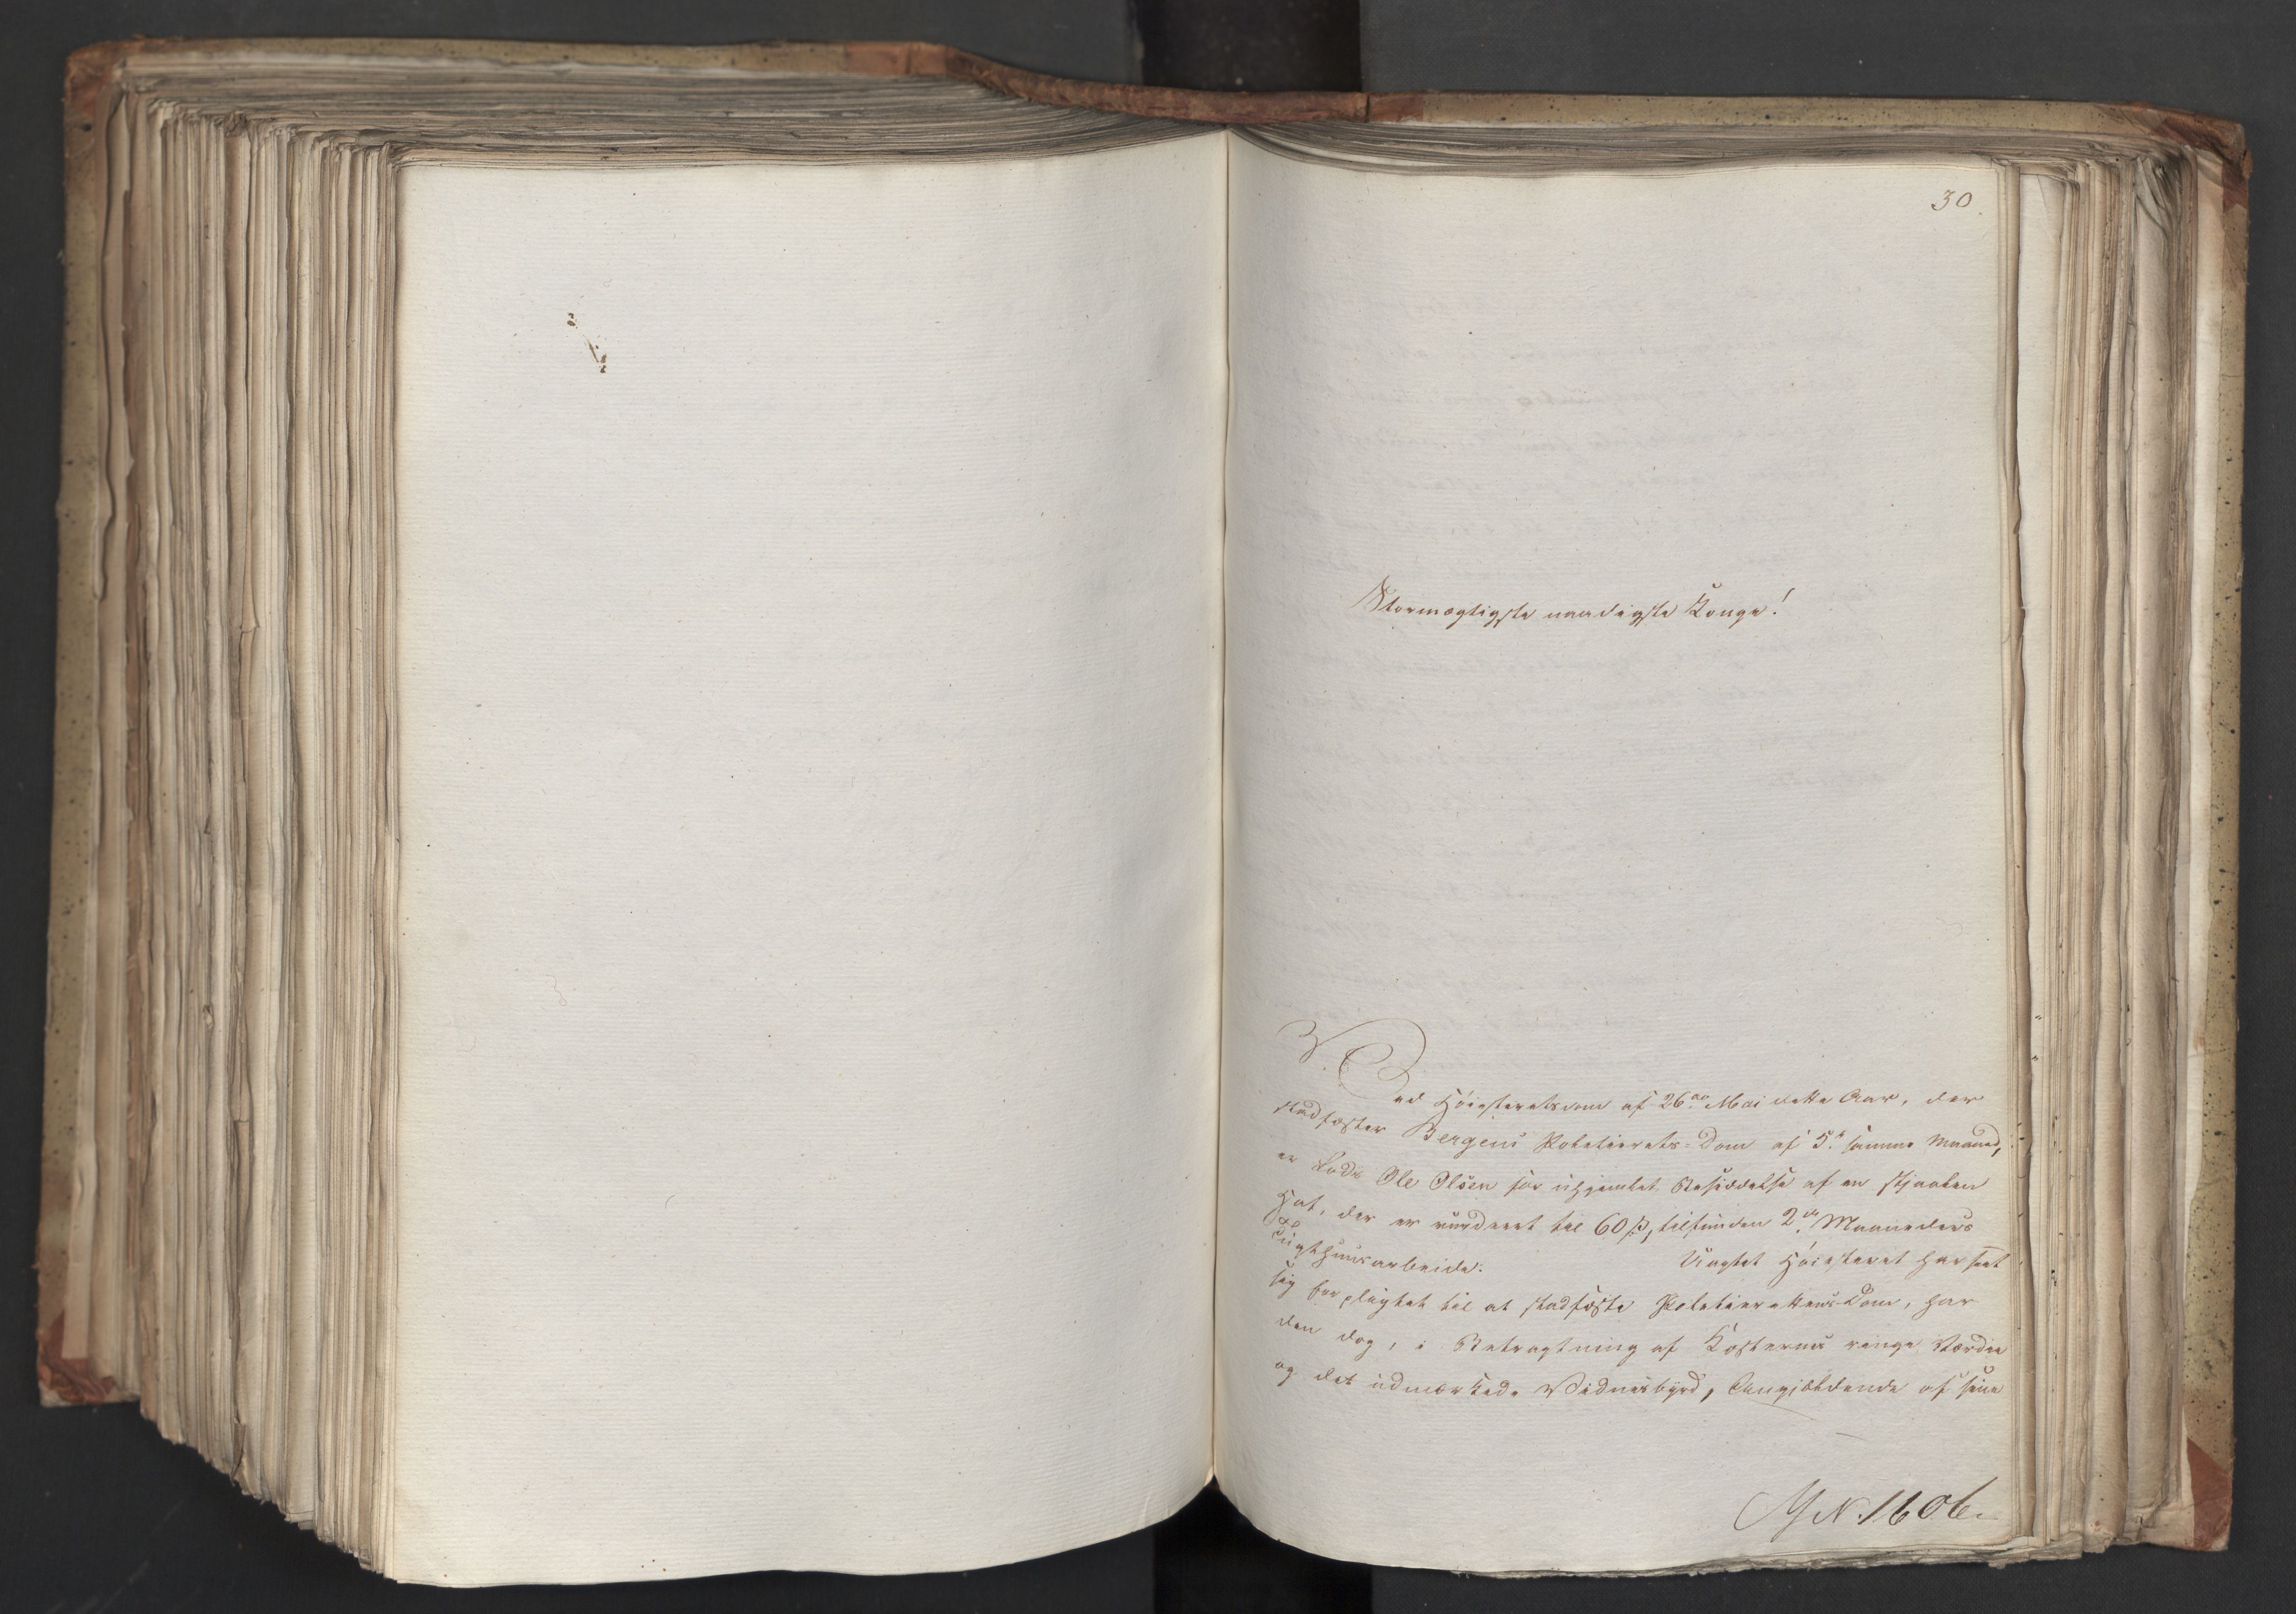 30
Stormægtigste naadigste Konge!
V.
Ved Høiesteretsdom af 26de Mai dette Aar, der
stadfæster Bergens Politierets-Dom af 5te samme Maaned,
er Ole Olsen for uhjemlet Besiddelse af en stjaalen
Hat, der er vurderet til 60 β, tilfunden 2de Maaneders
Tugthuusarbeide. Uagtet Høiesteret har seet
sig forpligtet til at stadfæste Politierettens Dom, har
den dog, i Betragtning af Kosternes ringe Værdie
og det udmærkede Vidnesbyrd, Angjældende af sine
N. 1606.